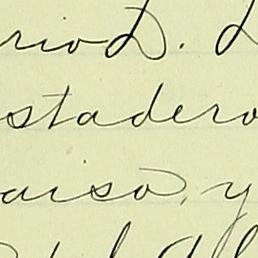 rio D. D
stadero
aiso, y